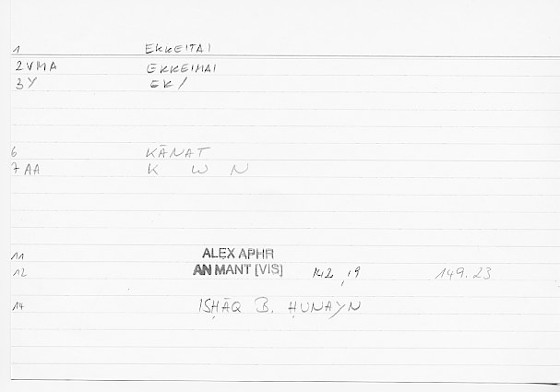 1 EKKEITAI
2 VMA EKKEIMAI
3 Y EK/
6 KĀNAT
7 AA K W N
11 ALEX APHR
12 AN MANT [VIS] 142,19 149.23
14 ISḤĀQ B. ḤUNAYN